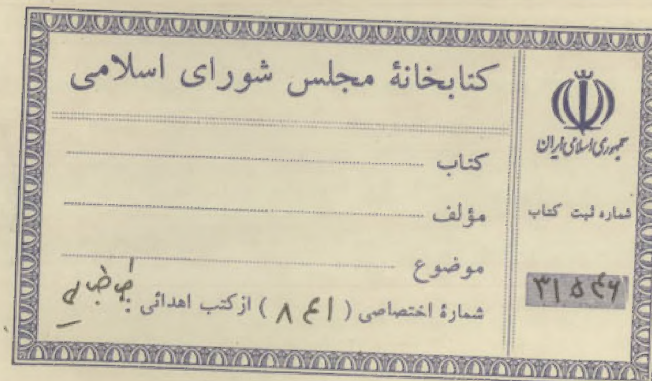 کتابخانهٔ مجلس شورای اسلامی
کتاب
مؤلف
موضوع
شمارهٔ اختصاصی ( ۸۴۱ ) از کتب اهدائی
جمهوری اسلامی ایران
شماره ثبت کتاب
۳۱۵۴۶